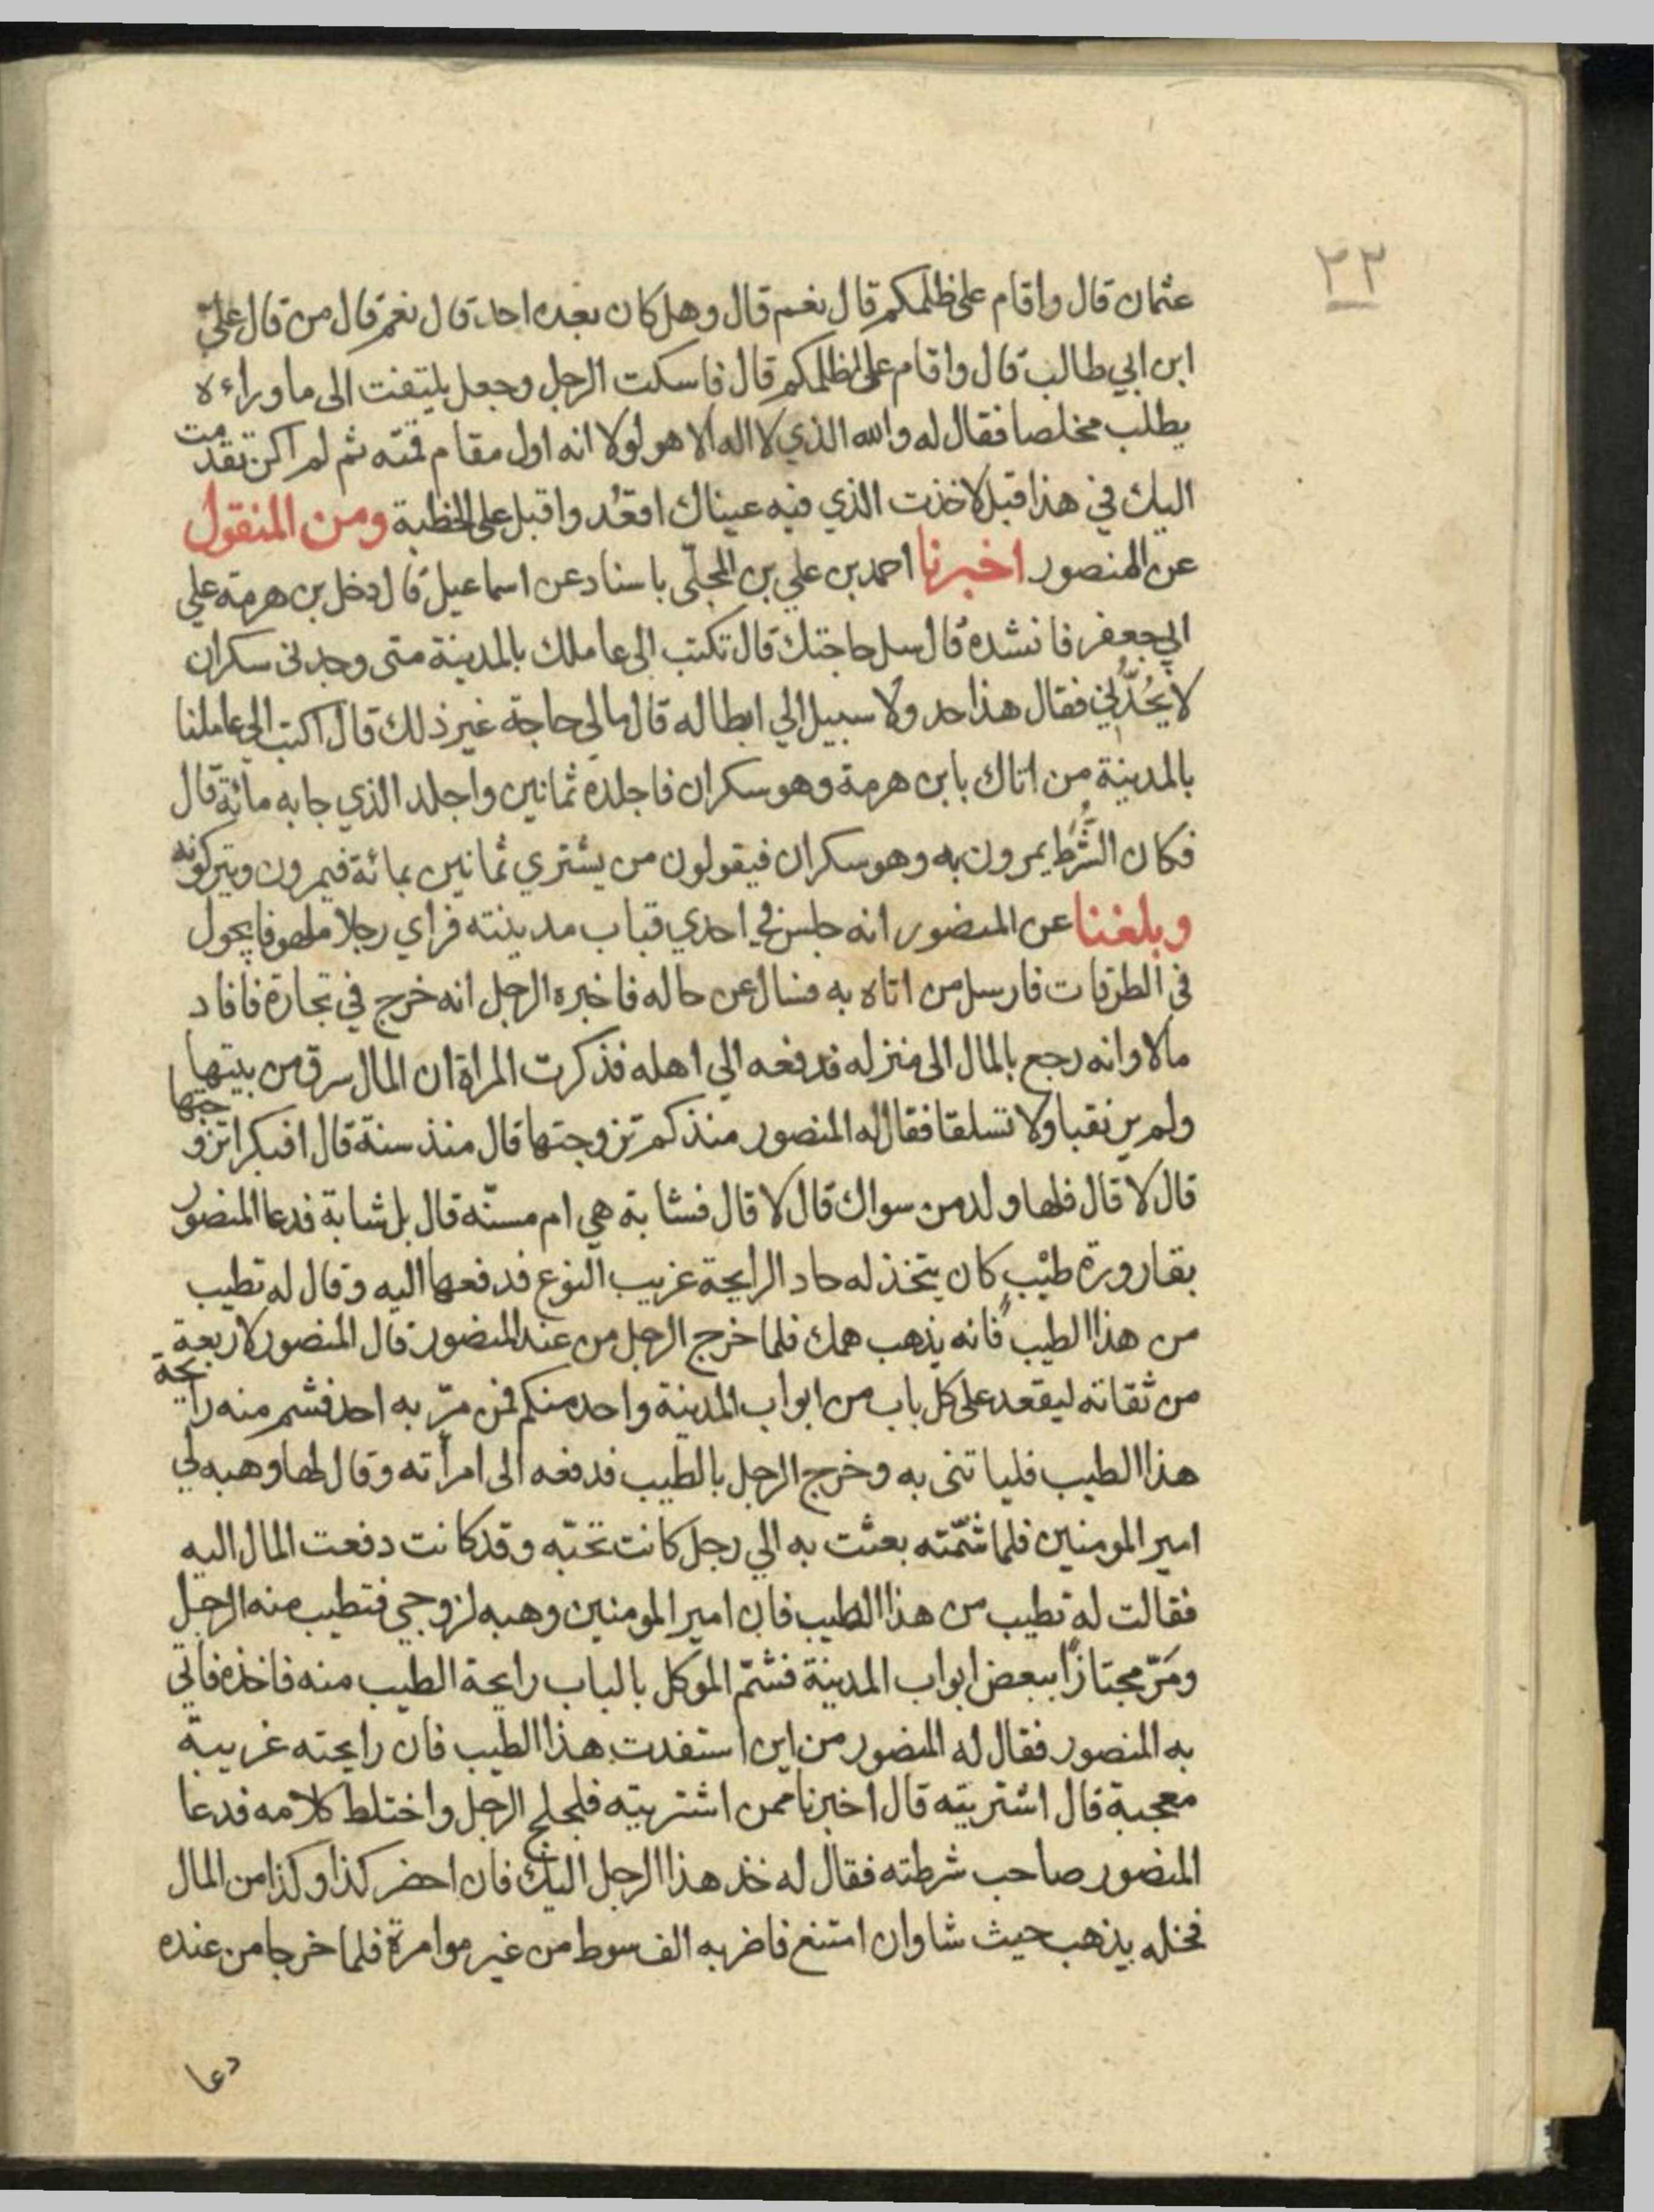 ٢٣
عثمان قال واقام على ظلمكم قال نعم قال وهل كان بعده احد قال نعم قال من قال عليّ
ابن ابي طالب قال واقام على ظلمكم قال فاسكت الرجل وجعل يلتفت الى ما وراءه
يطلب مخلصا فقال له والله الذي لا اله الا هو لولا انه اول مقام قمته ثم لم اكن تقدمت
اليك في هذا قبل لاخذت الذي فيه عيناك اقعُد واقبل على الخطبة ومن المنقول
عن المنصور اخبرنا احمد بن علي بن المجلّى باسناد عن اسماعيل قال دخل بن هرمة علي
ابي جعفر فانشده قال سل حاجتك قال تكتب الى عاملك بالمدينة متى وجدنى سكران
لا يَحُدُّني فقال هذا حد ولا سبيل الي ابطاله قال مالي حاجة غير ذلك قال اكتب الي عاملنا
بالمدينة من اتاك بابن هرمة وهو سكران فاجلده ثمانين واجلد الذي جا به مائة قال
فكان الشُّرَط يمرون به وهو سكران فيقولون من يشتري ثمانين بمائة فيمرون ويتركونه
وبلغنا عن المنصور انه جلس في احدي قباب مدينته فراي رجلا ملهوفا يجول
فى الطرقات فارسل من اتاه به فسال عن حاله فاخبره الرجل انه خرج في تجارة فافاد
مالا وانه رجع بالمال الى منزله فدفعه الي اهله فذكرت المراة ان المال سرق من بيتها
ولم ير نقبا ولا تسلقا فقال له المنصور منذ كم تزوجتها قال منذ سنة قال افبكرا تزوجتها
قال لا قال فلها ولد من سواك قال لا قال فشابة هي ام مسنّه قال بل شابة فدعا المنصور
بقارورة طيْبٍ كان يتخذ له حاد الرايحة غريب النوع فدفعها اليه وقال له تطيب
من هذا الطيب فانه يذهب همك فلما خرج الرجل من عند المنصور قال المنصور لاربعة
من ثقاته ليقعد على كل باب من ابواب المدينة واحد منكم فمن مرّ به احد فشم منه رايحة
هذا الطيب فلياتنى به وخرج الرجل بالطيب فدفعه الى امرأته وقال لها وهبه لي
امير المومنين فلما شمّته بعثت به الي رجل كانت تحبّه وقد كانت دفعت المال اليه
فقالت له تطيب من هذا الطيب فان امير المومنين وهبه لزوجي فتطيب منه الرجل
ومَرّ مجتازًا ببعض ابواب المدينة فشمّ الموكل بالباب رايحة الطيب منه فاخذه فاتي
به المنصور فقال له المنصور من اين استفدت هذا الطيب فان رايحته غريبة
معجبة قال اشتريته قال اخبرنا ممن اشتريته فلجلج الرجل واختلط كلامه فدعا
المنصور صاحب شرطته فقال له خذ هذا الرجل اليك فان احضر كذا وكذا من المال
فخله يذهب حيث شا وان امتنع فاضربه الف سوط من غير موامرة فلما خرجا من عنده
دعا